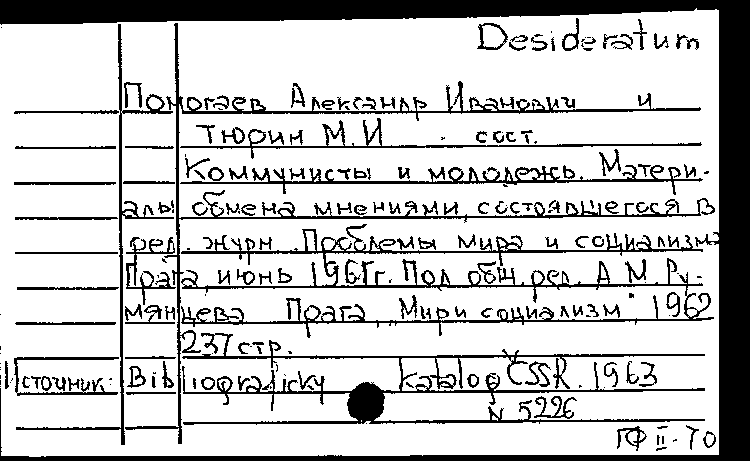 Desideratum
Помогаев Александр Иванович и
Тюрин М.И. сост.
Коммунисты и молодежь. Матери-
алы обмена мнениями, состоявшегося в
ред. журн. Проблемы мира и социализма
Прага, июнь 1961г. Под общ. ред. А М. Ру-
мянцева Прага, Мир и социализм, 1962
237 стр.
Источник: Bibliografický katalog ČSSR. 1963
N 5226
ГФ II-70